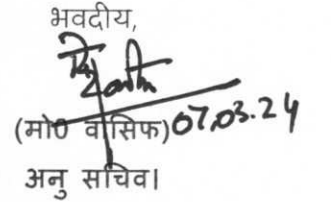 भवदीय,
(मो0 वासिफ) 07.03.24
अनु सचिव।